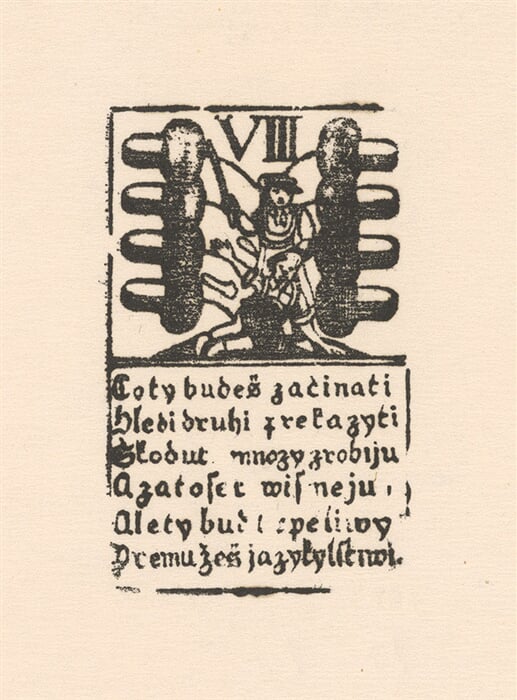 VIII
Coty budeš začinati
Hledi druhi překazyti
Škodut mnozy zrobiju
A zatoser wisneju,
Alety buď trpeliwy
Přemužeš jazyk lstiwi.